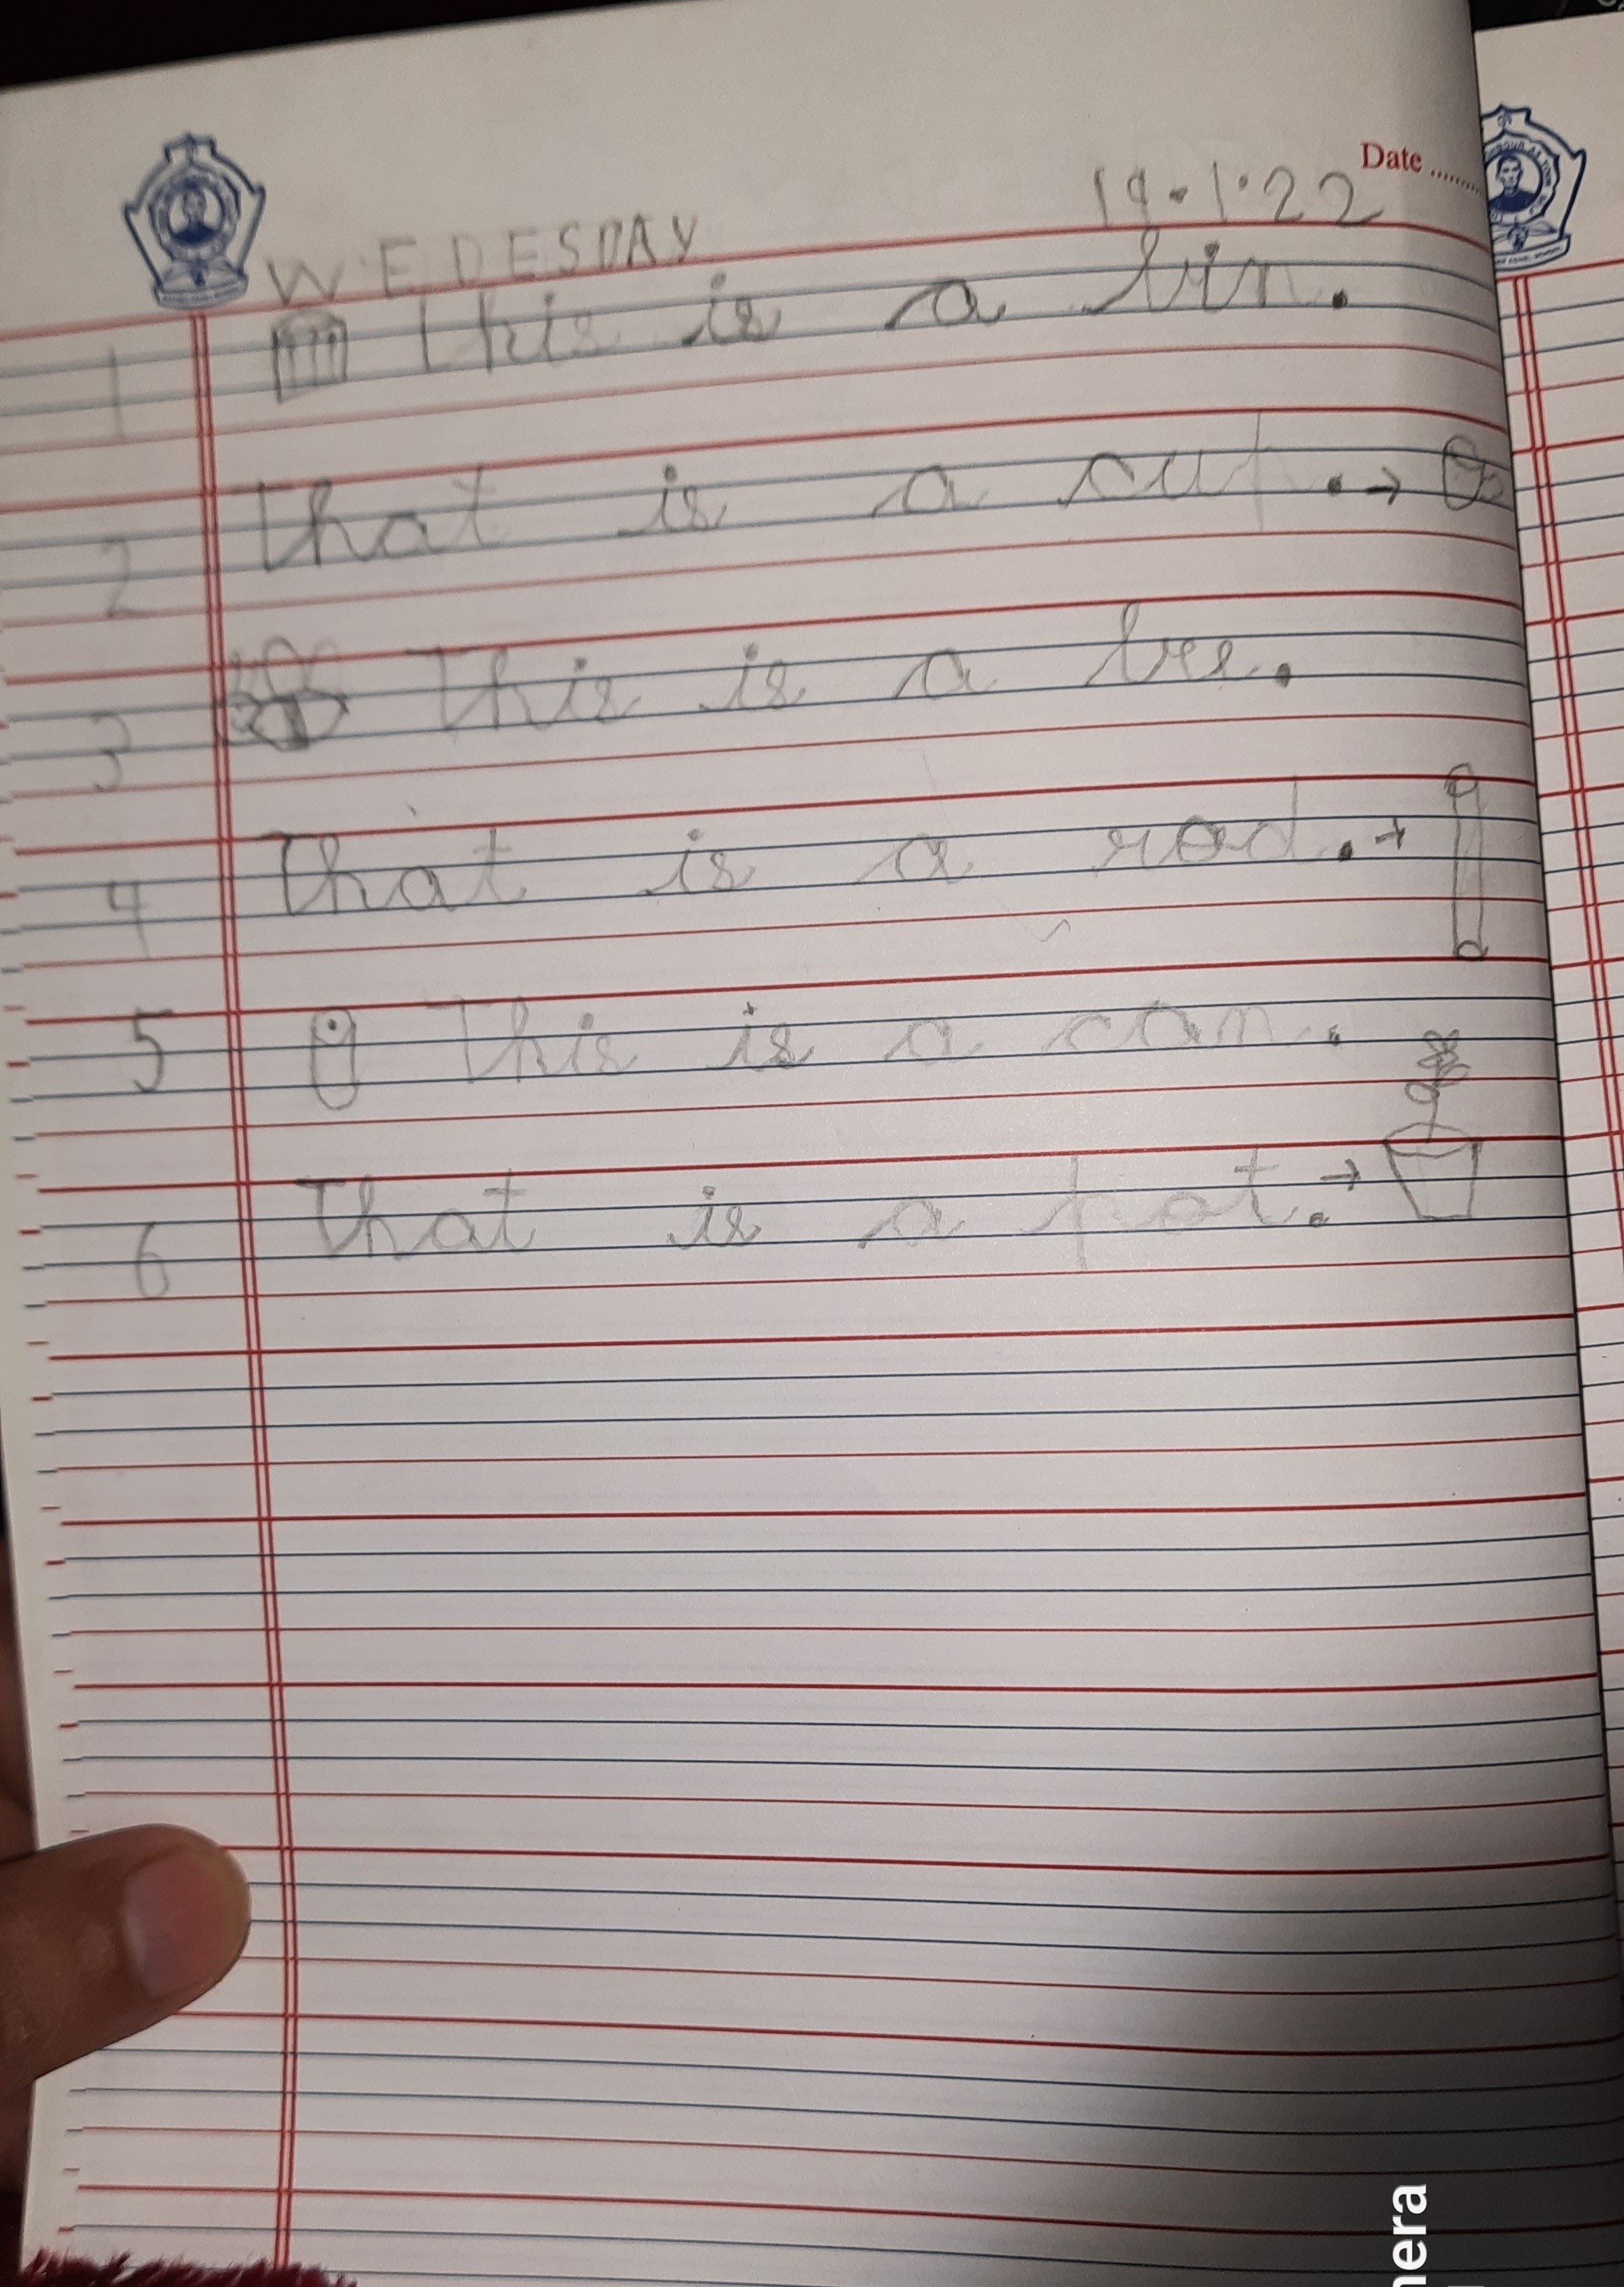 Date ........
19.1.22
WEDESDAY
1 This is a bin.
2 That is a cup. →
3 This is a bee.
4 That is a rod. →
5 This is a can.
6 That is a pot. →
mera